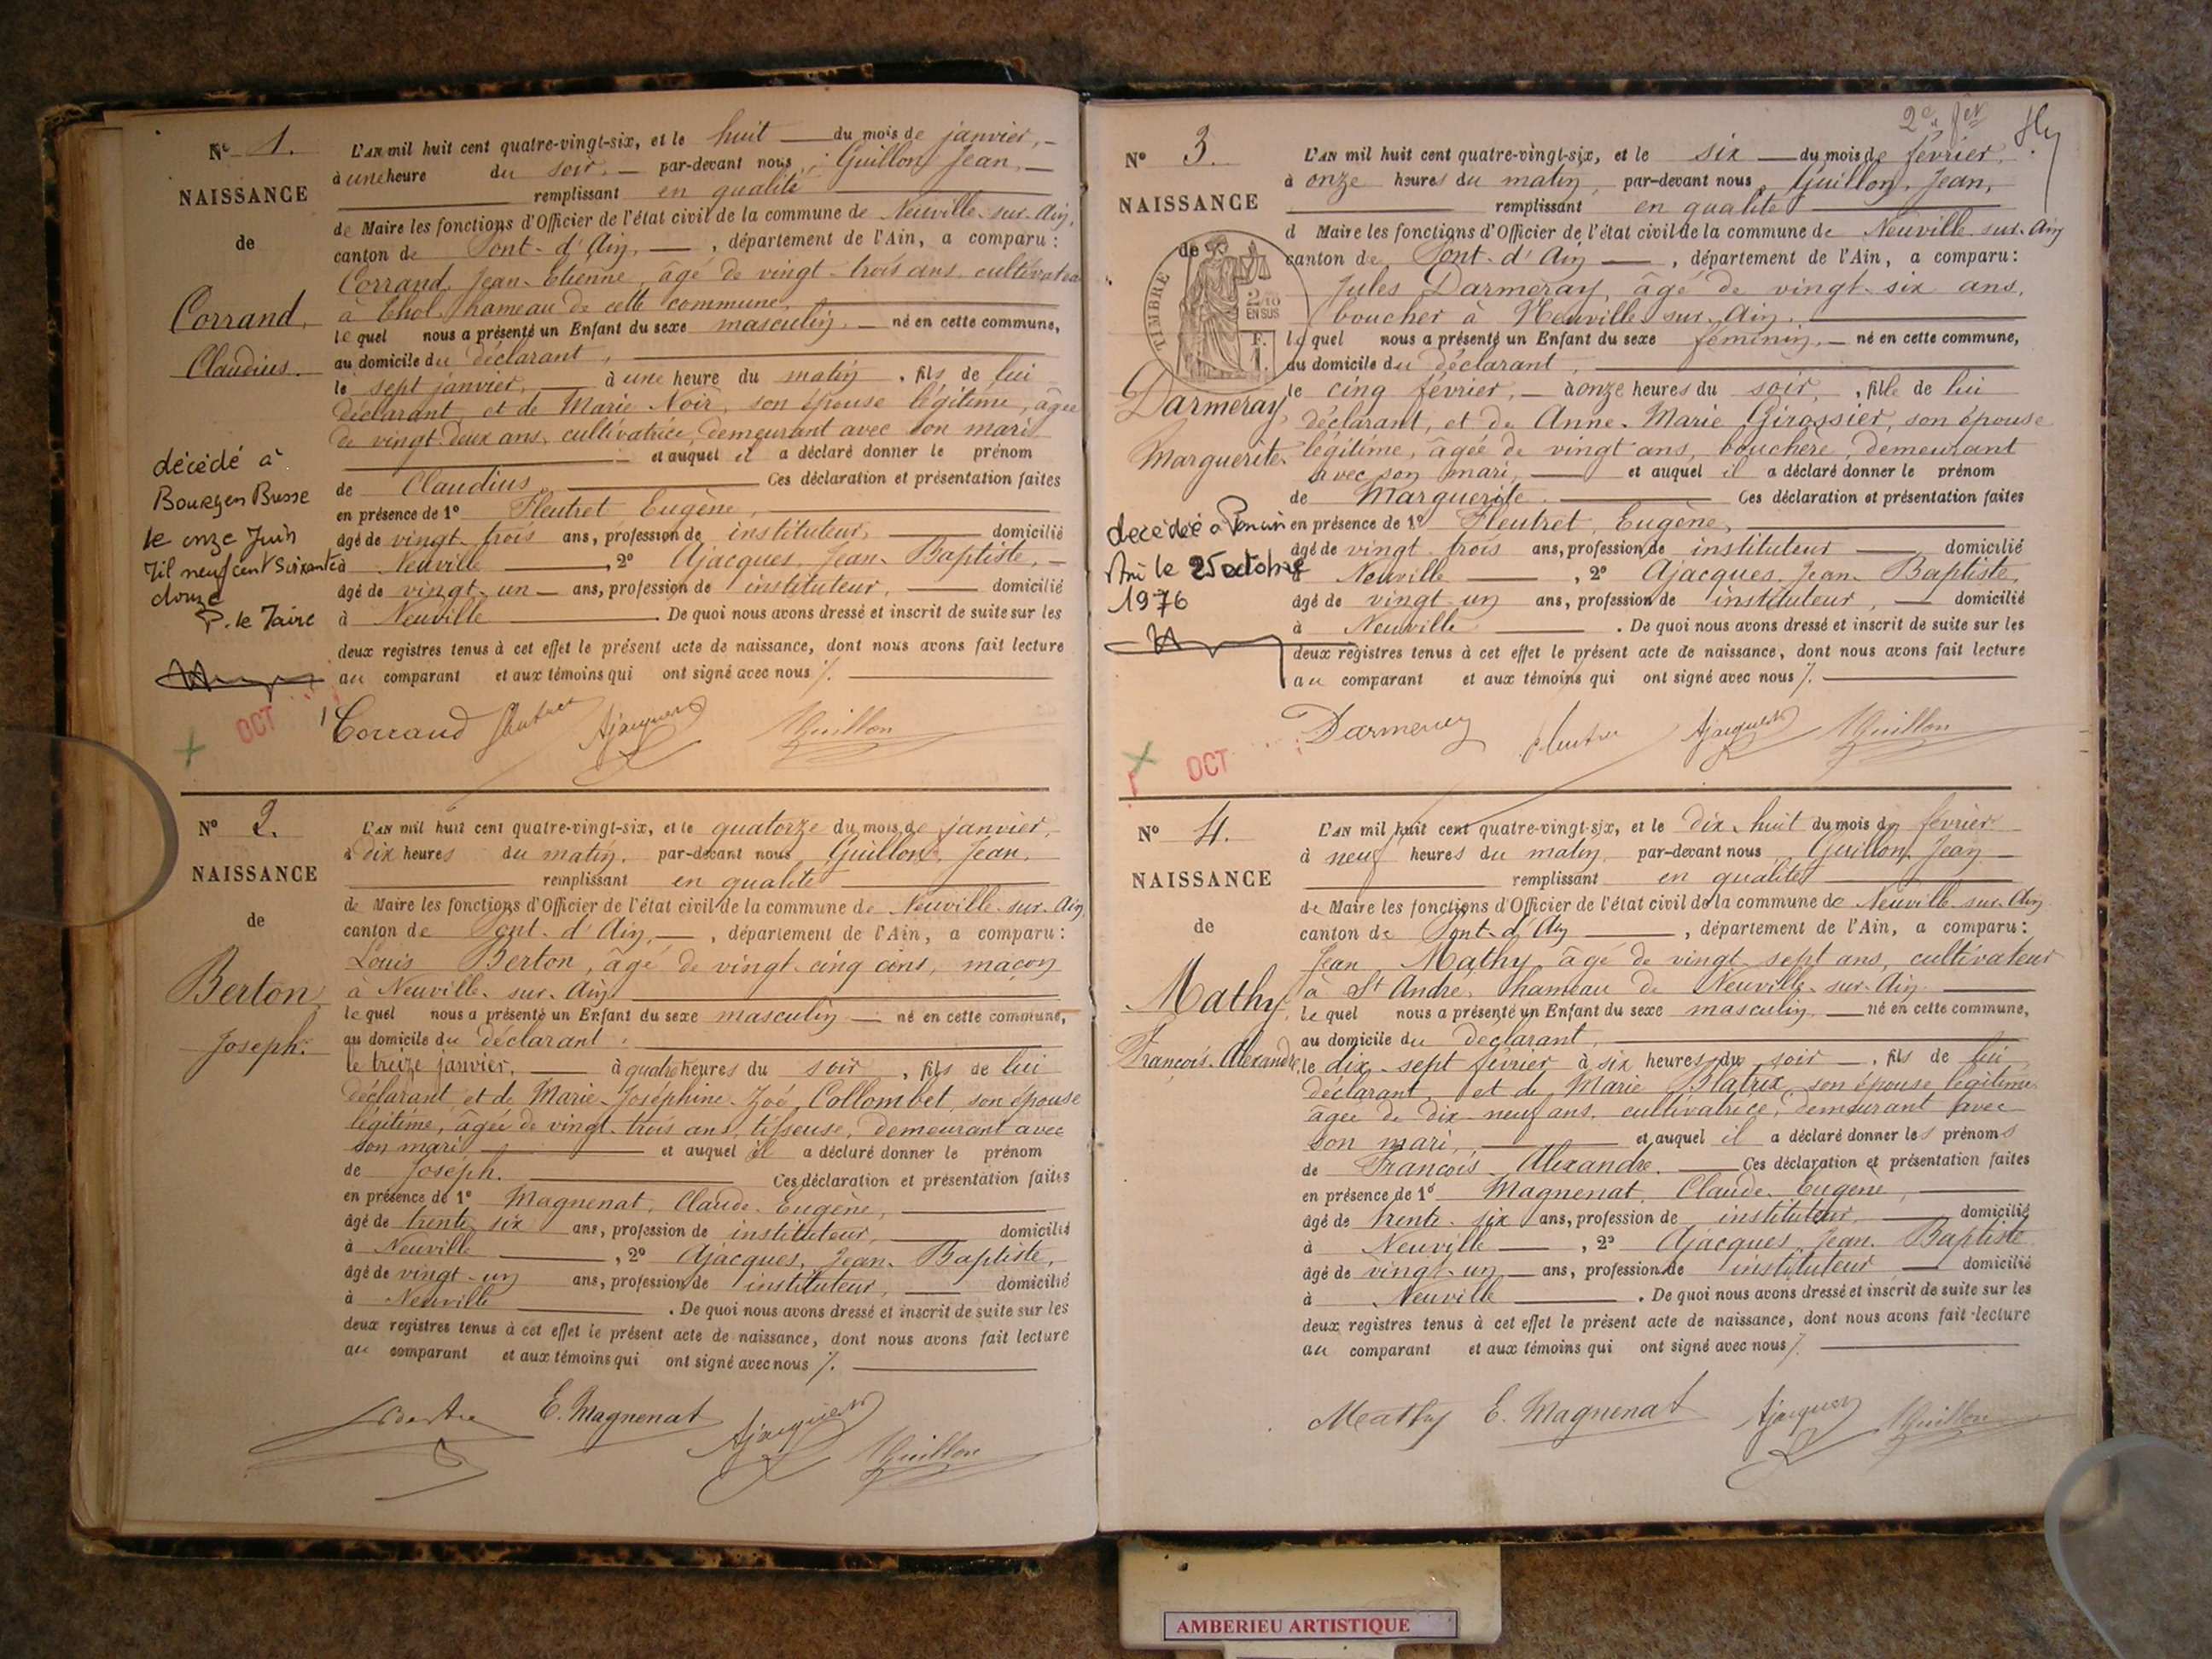 N° 1.
NAISSANCE
de
Corrand,
Claudius.
décédé à
Bourg en Bresse
le onze Juin
Mil neuf cent Soixante
douze
P. le Maire
OCT
L'AN mil huit cent quatre-vingt-six, et le huit du mois de janvier,
à une heure du soir, par-devant nous, Guillon, Jean,
remplissant en qualité
de Maire les fonctions d'Officier de l'état civil de la commune de Neuville-sur-Ain,
canton de Pont-d'Ain, département de l'Ain, a comparu :
Corrand, Jean-Etienne, âgé de vingt-trois ans, cultivateur
à Thol, hameau de cette commune,
lequel nous a présenté un Enfant du sexe masculin, né en cette commune,
au domicile du déclarant,
le sept janvier, à une heure du matin, fils de lui
déclarant, et de Marie Noir, son épouse légitime, âgée
de vingt-deux ans, cultivatrice, demeurant avec son mari
et auquel il a déclaré donner le prénom
de Claudius. Ces déclaration et présentation faites
en présence de 1° Fleutret Eugène,
âgé de vingt-trois ans, profession de instituteur, domicilié
à Neuville, 2° Ajacques, Jean-Baptiste,
âgé de vingt-un ans, profession de instituteur, domicilié
à Neuville. De quoi nous avons dressé et inscrit de suite sur les
deux registres tenus à cet effet le présent acte de naissance, dont nous avons fait lecture
au comparant et aux témoins qui ont signé avec nous ./.
Corrand Fleutret Ajacques Guillon
N° 2.
NAISSANCE
de
Berton,
Joseph.
L'AN mil huit cent quatre-vingt-six, et le quatorze du mois de janvier,
à dix heures du matin, par-devant nous, Guillon, Jean,
remplissant en qualité
de Maire les fonctions d'Officier de l'état civil de la commune de Neuville-sur-Ain
canton de Pont-d'Ain, département de l'Ain, a comparu :
Louis Berton, âgé de vingt-cinq ans, maçon
à Neuville-sur-Ain
lequel nous a présenté un Enfant du sexe masculin né en cette commune,
au domicile du déclarant,
le treize janvier, à quatre heures du soir, fils de lui
déclarant et de Marie-Joséphine-Zoé Collombet, son épouse
légitime, âgée de vingt-trois ans, tisseuse, demeurant avec
son mari et auquel il a déclaré donner le prénom
de Joseph. Ces déclaration et présentation faites
en présence de 1° Magnenat, Claude-Eugène,
âgé de trente-six ans, profession de instituteur, domicilié
à Neuville, 2° Ajacques, Jean-Baptiste,
âgé de vingt-un ans, profession de instituteur, domicilié
à Neuville. De quoi nous avons dressé et inscrit de suite sur les
deux registres tenus à cet effet le présent acte de naissance, dont nous avons fait lecture
au comparant et aux témoins qui ont signé avec nous ./.
E. Magnenat Ajacques Guillon
2e fer
N° 3.
NAISSANCE
de
TIMBRE
2/10
EN SUS
F.
1.
Darmeray,
Marguerite
décédée à Poncin
Ain le 25 octobre
1976
OCT
L'AN mil huit cent quatre-vingt-six, et le six du mois de février,
à onze heures du matin, par-devant nous, Guillon, Jean,
remplissant en qualité
d Maire les fonctions d'Officier de l'état civil de la commune de Neuville-sur-Ain
canton de Pont-d'Ain, département de l'Ain, a comparu :
Jules Darmeray, âgé de vingt-six ans,
boucher à Neuville-sur-Ain,
lequel nous a présenté un Enfant du sexe féminin, né en cette commune,
au domicile du déclarant,
le cinq février, à onze heures du soir, fille de lui
déclarant, et de Anne-Marie Girossier, son épouse
légitime, âgée de vingt ans, bouchère, demeurant
avec son mari, et auquel il a déclaré donner le prénom
de Marguerite. Ces déclaration et présentation faites
en présence de 1° Fleutret, Eugène,
âgé de vingt-trois ans, profession de instituteur domicilié
à Neuville, 2° Ajacques, Jean-Baptiste,
âgé de vingt-un ans, profession de instituteur, domicilié
à Neuville. De quoi nous avons dressé et inscrit de suite sur les
deux registres tenus à cet effet le présent acte de naissance, dont nous avons fait lecture
au comparant et aux témoins qui ont signé avec nous ./.
Darmeray Fleutret Ajacques Guillon
N° 4.
NAISSANCE
de
Mathy,
François-Alexandre,
L'AN mil huit cent quatre-vingt-six, et le dix-huit du mois de février
à neuf heures du matin, par-devant nous, Guillon, Jean
remplissant en qualité
de Maire les fonctions d'Officier de l'état civil de la commune de Neuville-sur-Ain
canton de Pont-d'Ain, département de l'Ain, a comparu :
Jean Mathy, âgé de vingt-sept ans, cultivateur
à St André, hameau de Neuville-sur-Ain
lequel nous a présenté un Enfant du sexe masculin, né en cette commune,
au domicile du déclarant,
le dix-sept février à six heures du soir, fils de lui
déclarant et de Marie Blatrix, son épouse légitime
âgée de dix-neuf ans, cultivatrice, demeurant avec
son mari, et auquel il a déclaré donner les prénoms
de François-Alexandre. Ces déclaration et présentation faites
en présence de 1° Magnenat, Claude-Eugène,
âgé de trente-six ans, profession de instituteur, domicilié
à Neuville, 2° Ajacques, Jean-Baptiste
âgé de vingt-un ans, profession de instituteur domicilié
à Neuville. De quoi nous avons dressé et inscrit de suite sur les
deux registres tenus à cet effet le présent acte de naissance, dont nous avons fait lecture
au comparant et aux témoins qui ont signé avec nous ./.
Mathy E. Magnenat Ajacques Guillon
AMBERIEU ARTISTIQUE